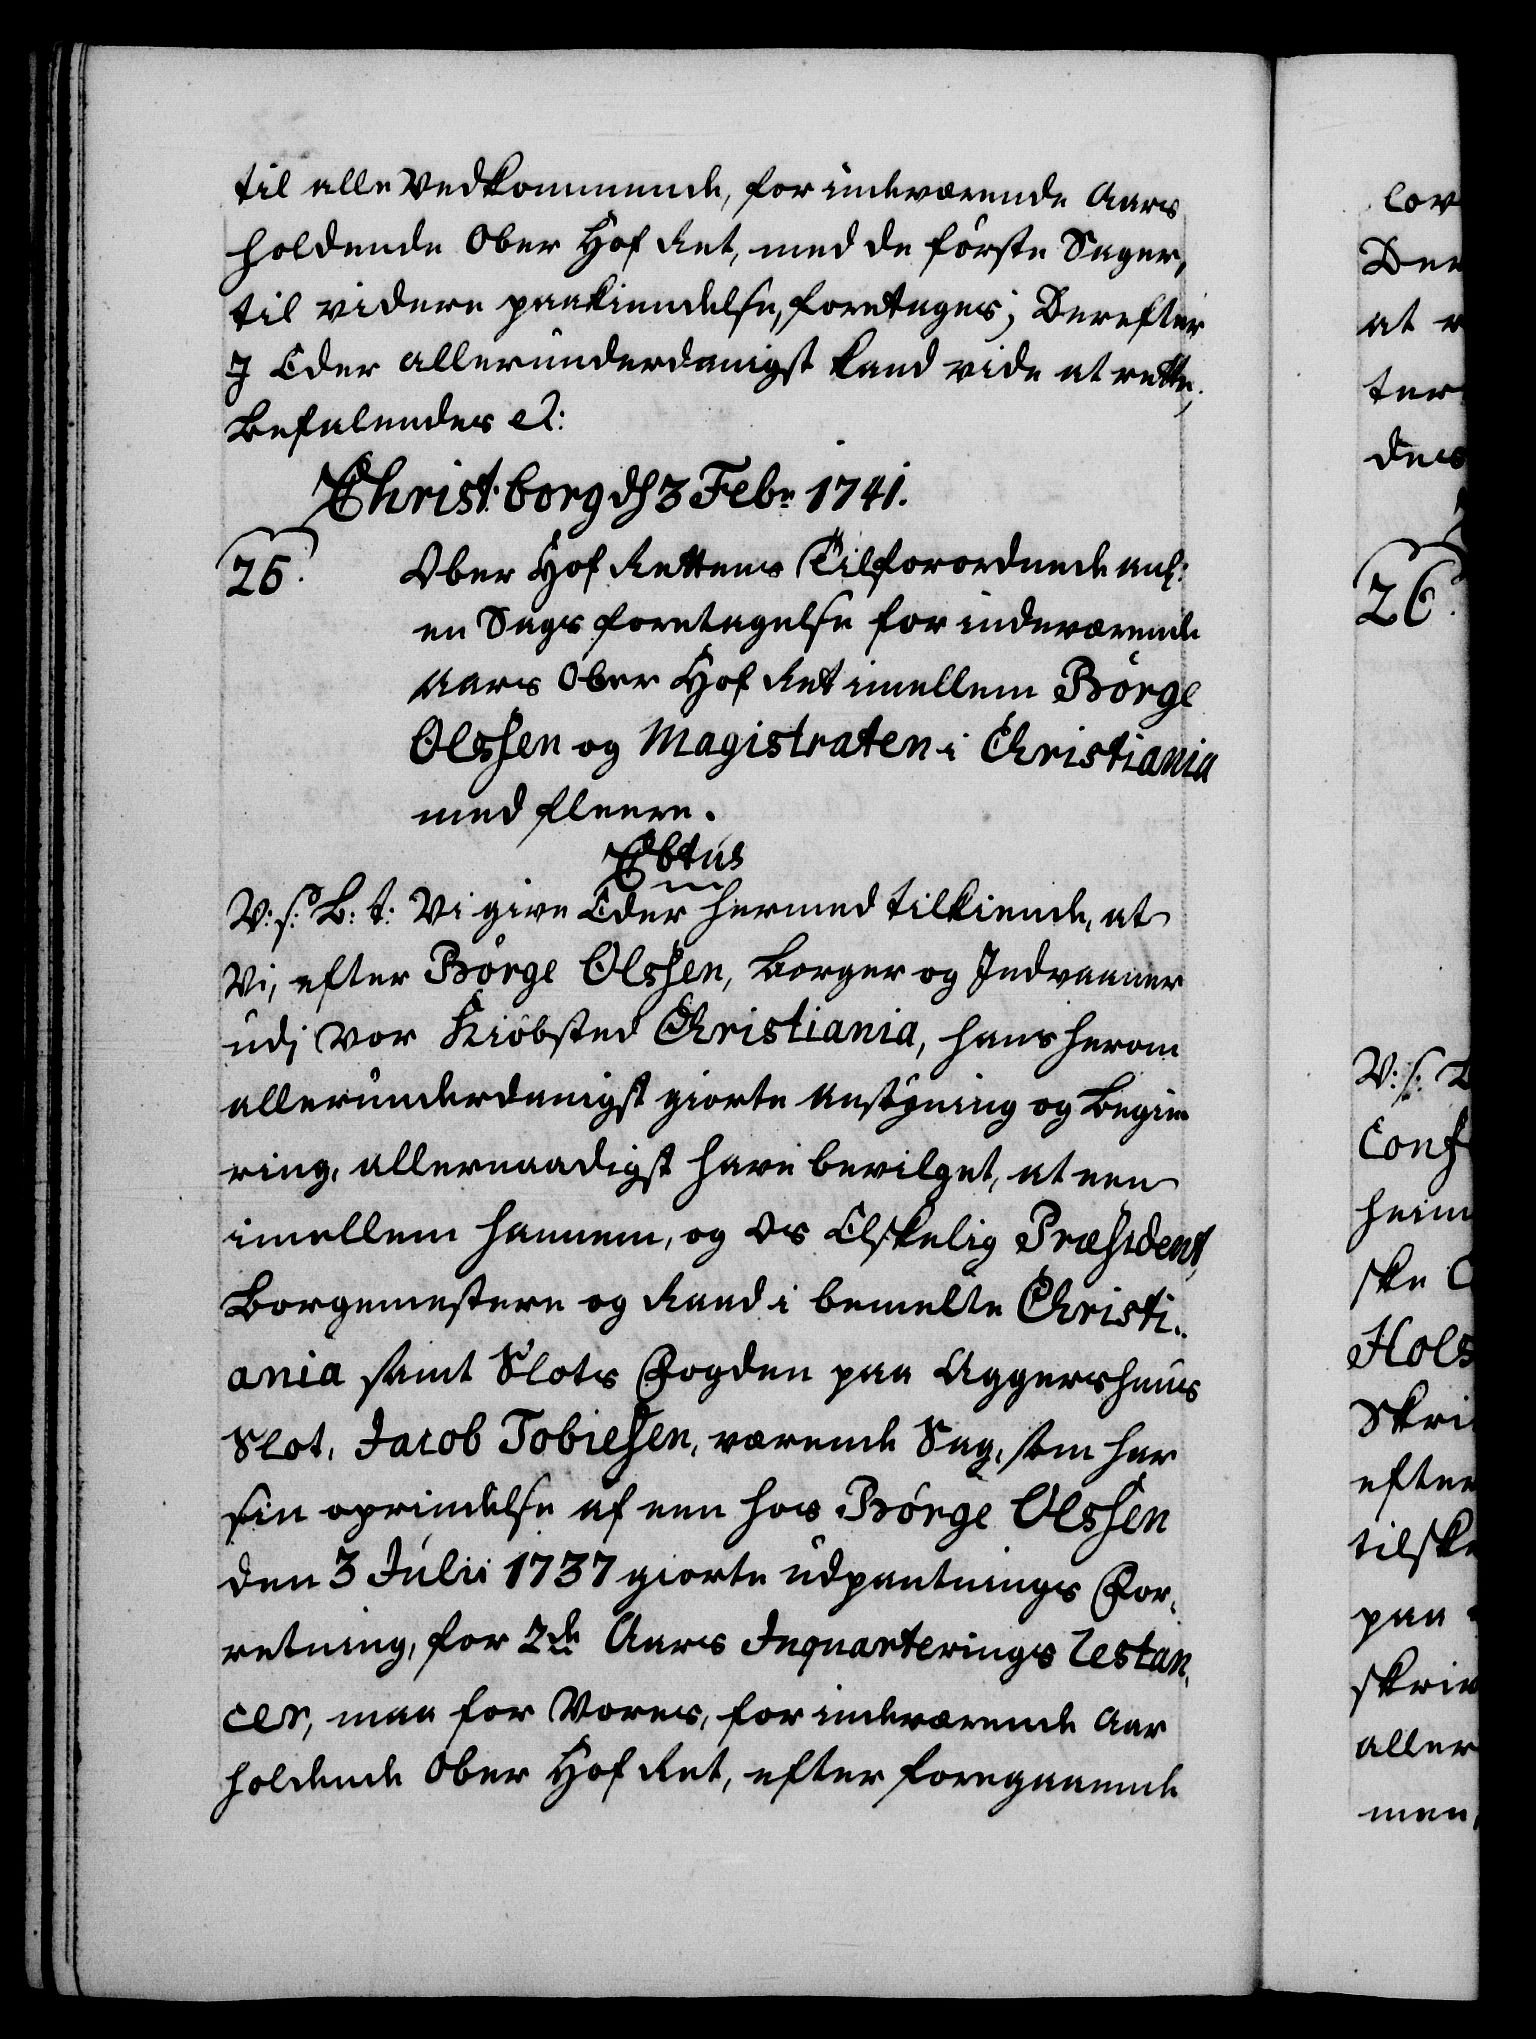 til alle Vedkommende, for indeværende Aars
holdende Ober Hof Ret, med de første Sager,
til videre paakiendelse, foretages; Derefter
I Eder allerunderdanigst kand vide at rette,
Befalendes etc:
Christ:borg d 3 Febr 1741.
25.
Ober Hof Rettens Tilforordnede anl:
en Sags foretagelse for indeværende
Aars Ober Hof Ret imellem Börge
Olssen og Magistraten i Christiania
med fleere.
Ebtus
V: s: B: t: Vi give Eder hermed tilkiende, at
Vi, efter Börge Olssen, Borger og Indvaaner
udj vor Kiöbsted Christiania, hans herom
allerunderdanigst giorte Ansögning og Begie-
ring, allernaadigst have bevilget, at een
imellem hannem, og Os Elskelig Præsident,
Borgemestere og Raad i bemelte Christi-
ania samt Slots Fogden paa Aggershuus
Slot, Jacob Tobiesen, værende Sag, som har
sin oprindelse af een hos Börge Olssen
den 3 Julii 1737 giorte udpantnings For-
retning, for 2de Aars Inquarterings Restan-
cer, maa for Vores, for indeværende Aar
holdende Ober Hof Ret, efter foregaaende
cov
at
ter
des
26.
V: s:
Conf
heim
ske
Hols
Skri
efter
tilske
paa
skriv
aller
men,